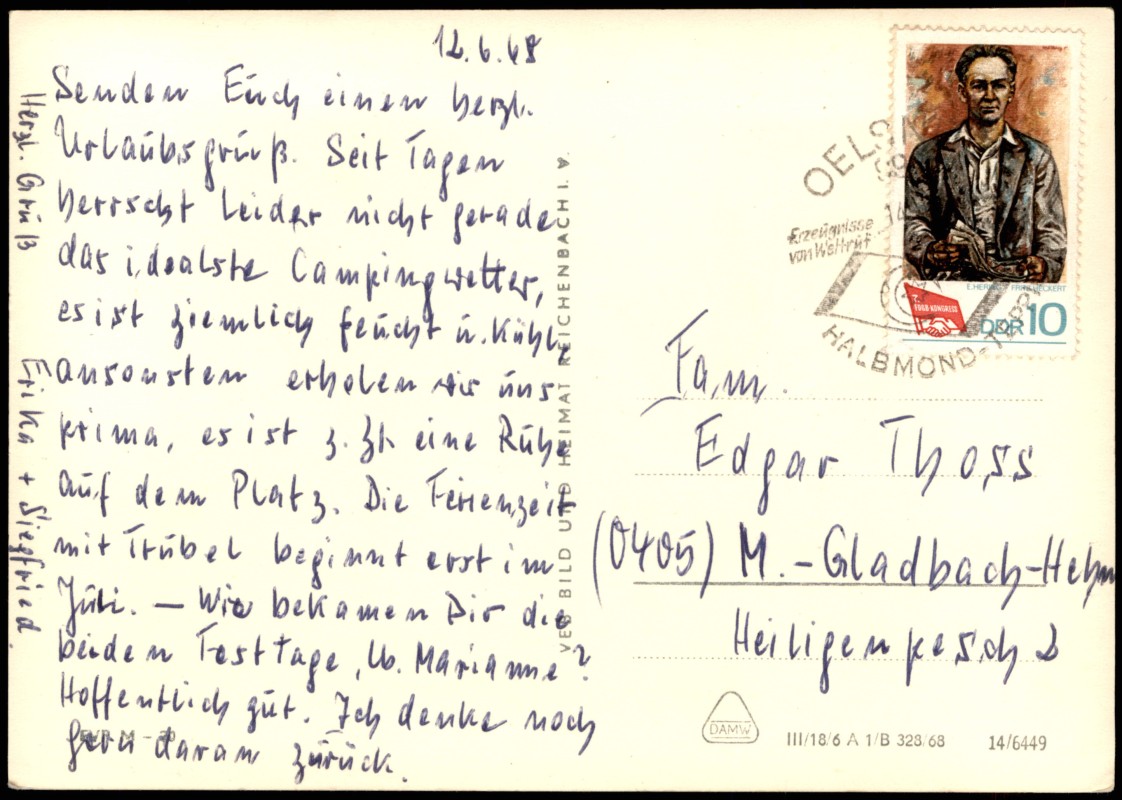 12.6.68
Senden Euch einen herzl.
Urlaubsgruß. Seit Tagen
herrscht leider nicht gerade
das idealste Campingwetter,
es ist ziemlich feucht u. kühl,
ansonsten erholen wir uns
prima, es ist z. Zt. eine Ruhe
auf dem Platz. Die Ferienzeit
mit Trubel beginnt erst im
Juli. – Wie bekamen Dir die
beiden Festtage, lb. Marianne?
Hoffentlich gut. Ich denke noch
gern daran zurück.
Herzl. Gruß
Erika + Siegfried
VEB BILD UND HEIMAT REICHENBACH I. V.
EVP M –
OELS
Erzeugnisse
von Weltruf
HALBMOND-TEPP
E. HERING FRITZ HECKERT
7.
FDGB-KONGRESS
DDR 10
Fam.
Edgar Thoss
(0405) M.-Gladbach-Hehn
Heiligenpesch 2
DAMW
III/18/6 A 1/B 328/68 14/6449